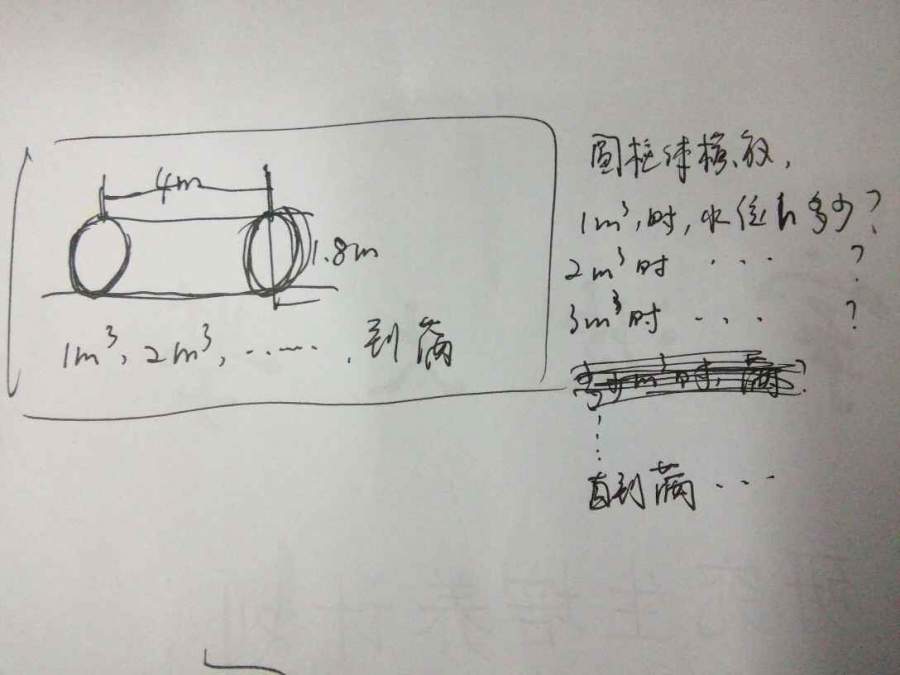 4m
1.8m
1m³, 2m³, ……, 到满
圆柱体横放,
1m³,时,水位h多少?
2m³时 ... ?
3m³时 ... ?
直到满 ...
研究生培养计划